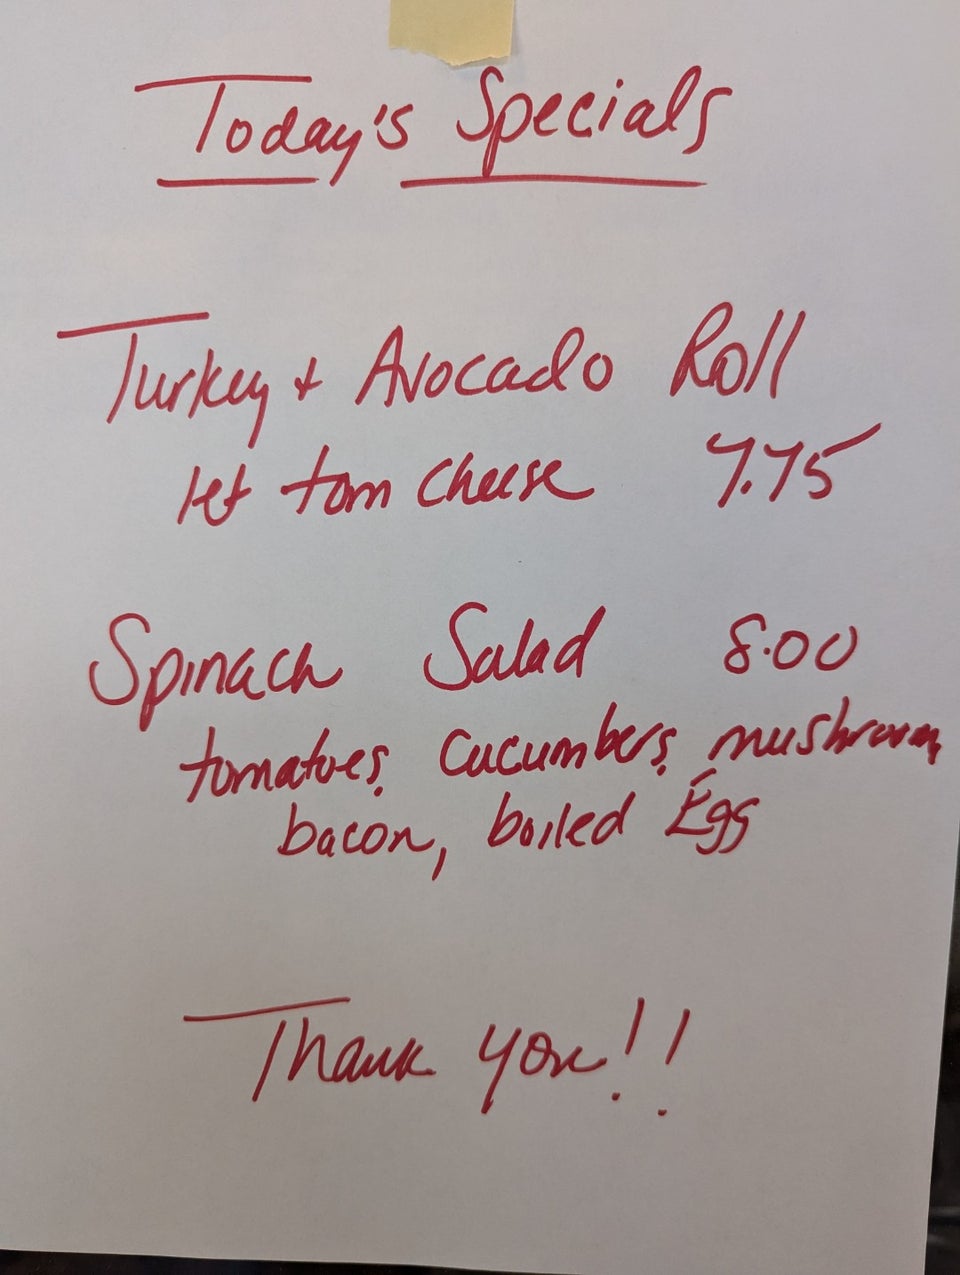 Today's Specials
Turkey + Avocado Roll
let tom cheese 7.75
Spinach Salad 8.00
tomatoes, cucumbers, mushroom,
bacon, boiled Egg
Thank you!!